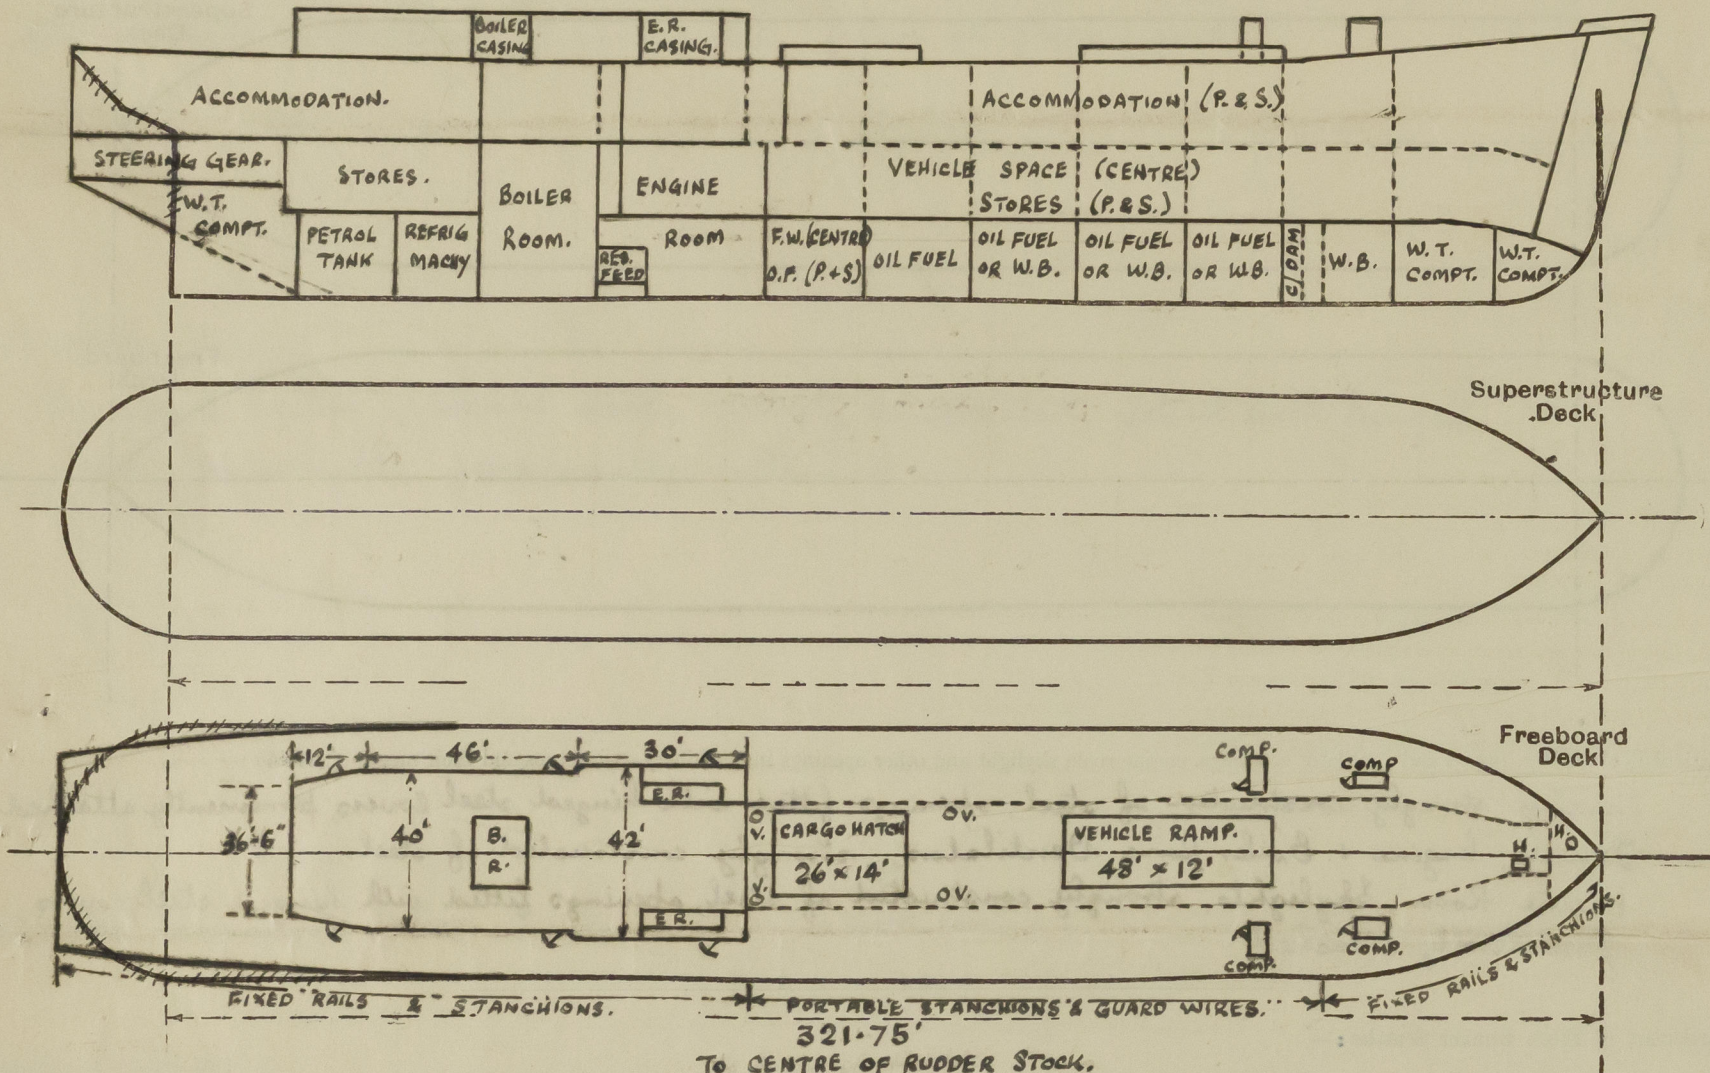 BOILER
CASING
E.R.
CASING.
ACCOMMODATION.
ACCOMMODATION (P. & S.)
STEERING GEAR.
STORES.
BOILER
ROOM.
ENGINE
ROOM
VEHICLE SPACE (CENTRE)
STORES (P. & S.)
W.T.
COMPT.
PETROL
TANK
REFRIG
MACHY
RES.
FEED
F.W. (CENTRE)
O.F. (P.+S)
OIL FUEL
OIL FUEL
OR W.B.
OIL FUEL
OR W.B.
OIL FUEL
OR W.B.
C/DAM
W.B.
W.T.
COMPT.
W.T.
COMPT.
Superstructure
Deck
Freeboard
Deck
12' 46' 30'
36'-6"
40'
42'
B.
R.
E.R.
E.R.
O V.
O V.
O V.
O V.
CARGO HATCH
26' x 14'
VEHICLE RAMP.
48' x 12'
COMP.
COMP
COMP.
COMP.
H.
H.
O
FIXED RAILS & STANCHIONS.
PORTABLE STANCHIONS & GUARD WIRES.
FIXED RAILS & STANCHIONS.
321.75'
TO CENTRE OF RUDDER STOCK.